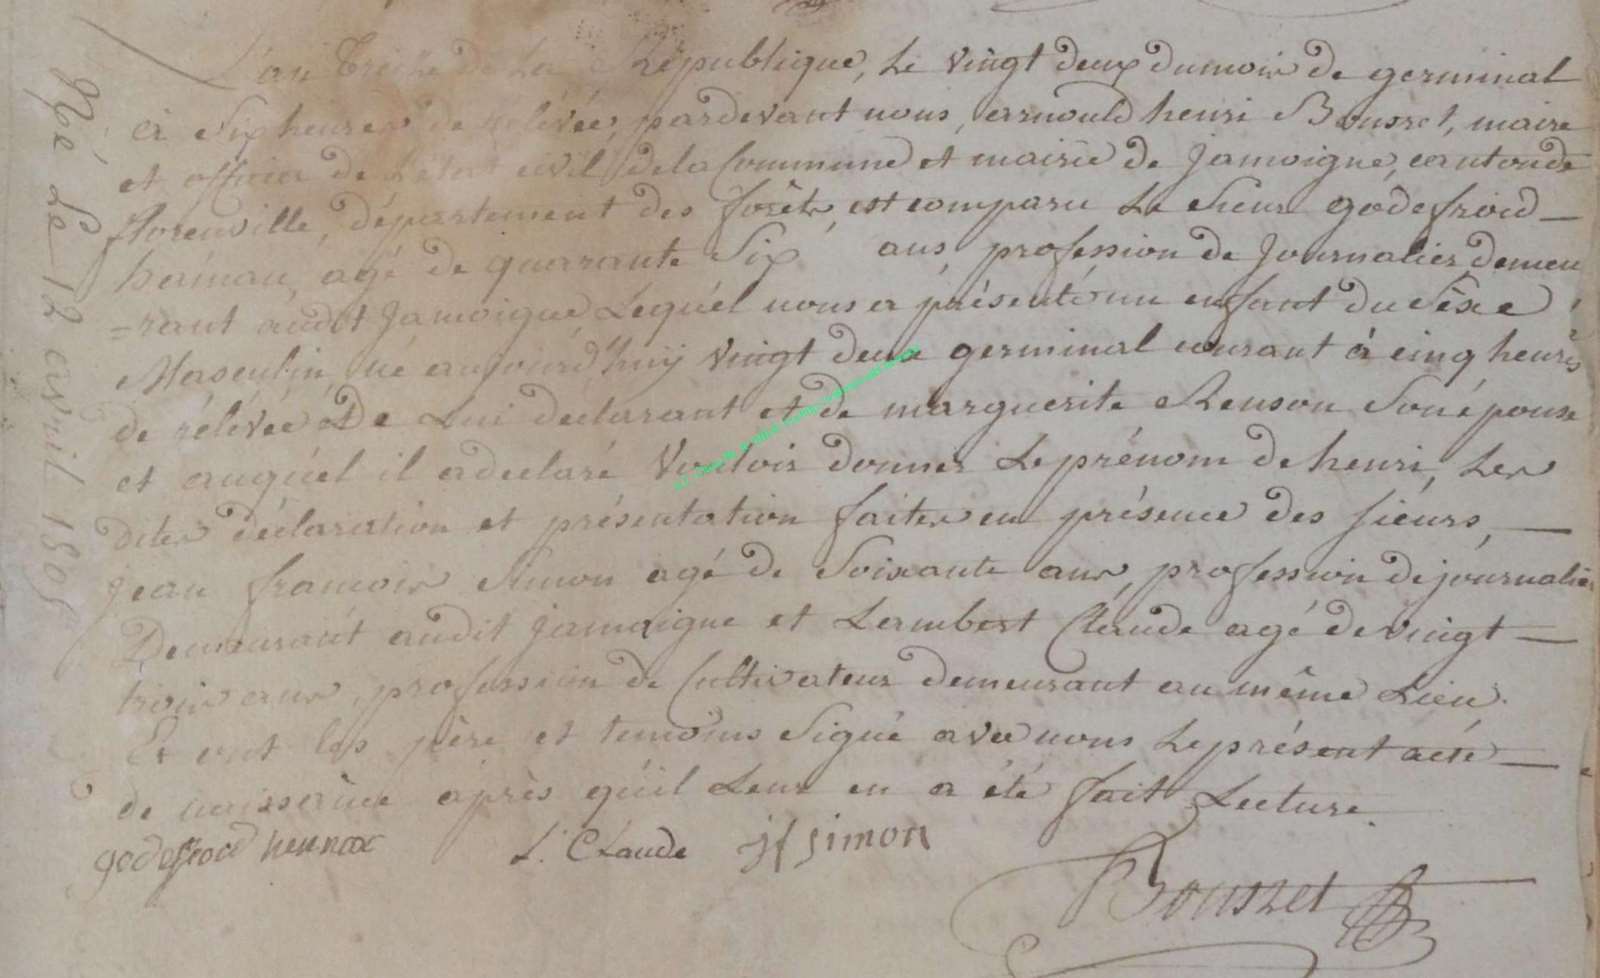 L'an treize de la République, le vingt deux du mois de germinal
à six heures de relévée, pardevant nous, arnould henri Bousret, maire
et officier de l'état civil de la Commune et mairie de Jamoigne, canton de
florenville, département des forêts, est comparu le sieur godefroid —
hainau, agé de quarante six ans, profession de Journalier demeu
=rant audit Jamoigne Lequél nous a présenté un enfant du séxe
Masculin, né aujourd'huy vingt deux germinal courant à cinq heures
de rélévée De Lui declarant et de marguerite Renson son épouse
et auquél il a declaré Vouloir donner Le prénom de henri, Les
dites déclaration et présentation faites en présence des sieurs, —
Jean francois Simon agé de Soixante ans, profession de journalier
Demeurant audit Jamoigne et Lambert Claude agé de vingt —
trois ans, profession de Cultivateur demeurant au même Lieu.
Et ont les père et temoins Signé avec nous Le présent acte —
de naissance après qu'il Leur en a été fait Lecture.
godefroid L. Claude jf simon
Bousret
Né Le 12 avril 1805